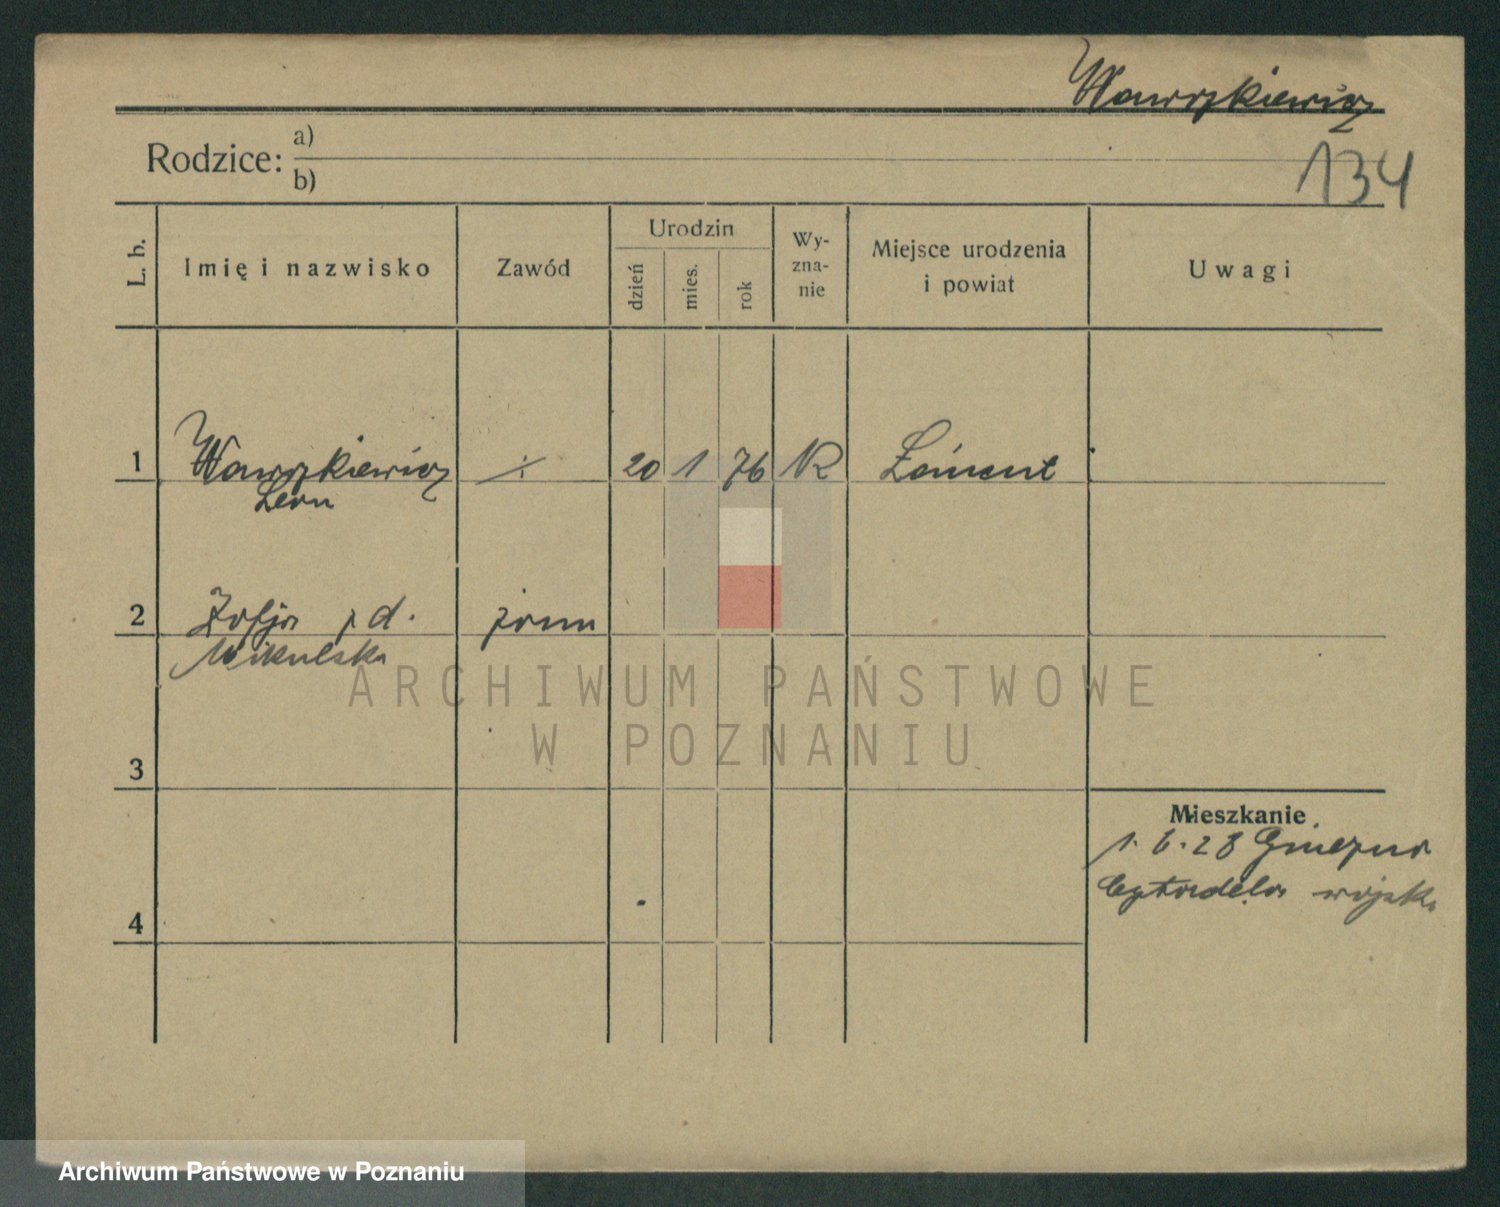 Wawrzkiewicz
Rodzice:
a)
b)
134
L. b.
Imię i nazwisko
Zawód
Urodzin
dzień
mies.
rok
Wy-
zna-
nie
Miejsce urodzenia
i powiat
Uwagi
1
Wawrzkiewicz
Leon
20 1 76
2
Zofja z d.
Mikulska
żona
ARCHIWUM PAŃSTWOWE
W POZNANIU
3
Mieszkanie
1. 6. 28 Gniezno
Cytadela wojsk.
4
Archiwum Państwowe w Poznaniu